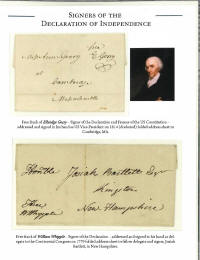 SIGNERS OF THE
DECLARATION OF INDEPENDENCE
Free
E Gerry
at
Cambridge
Massachusetts
Free frank of Elbridge Gerry - Signer of the Declaration and Framer of the US Constitution -
addressed and signed in his hand as US Vice President on 1814 (docketed) folded address sheet to
Cambridge, MA.
Honble Josiah Bartlett Esqr
Kingston
Free
Wm Whipple
New Hampshire
Free frank of William Whipple - Signer of the Declaration - addressed and signed in his hand as del-
egate to the Continental Congress on 1779 folded address sheet to fellow delegate and signer, Josiah
Bartlett, in New Hampshire.